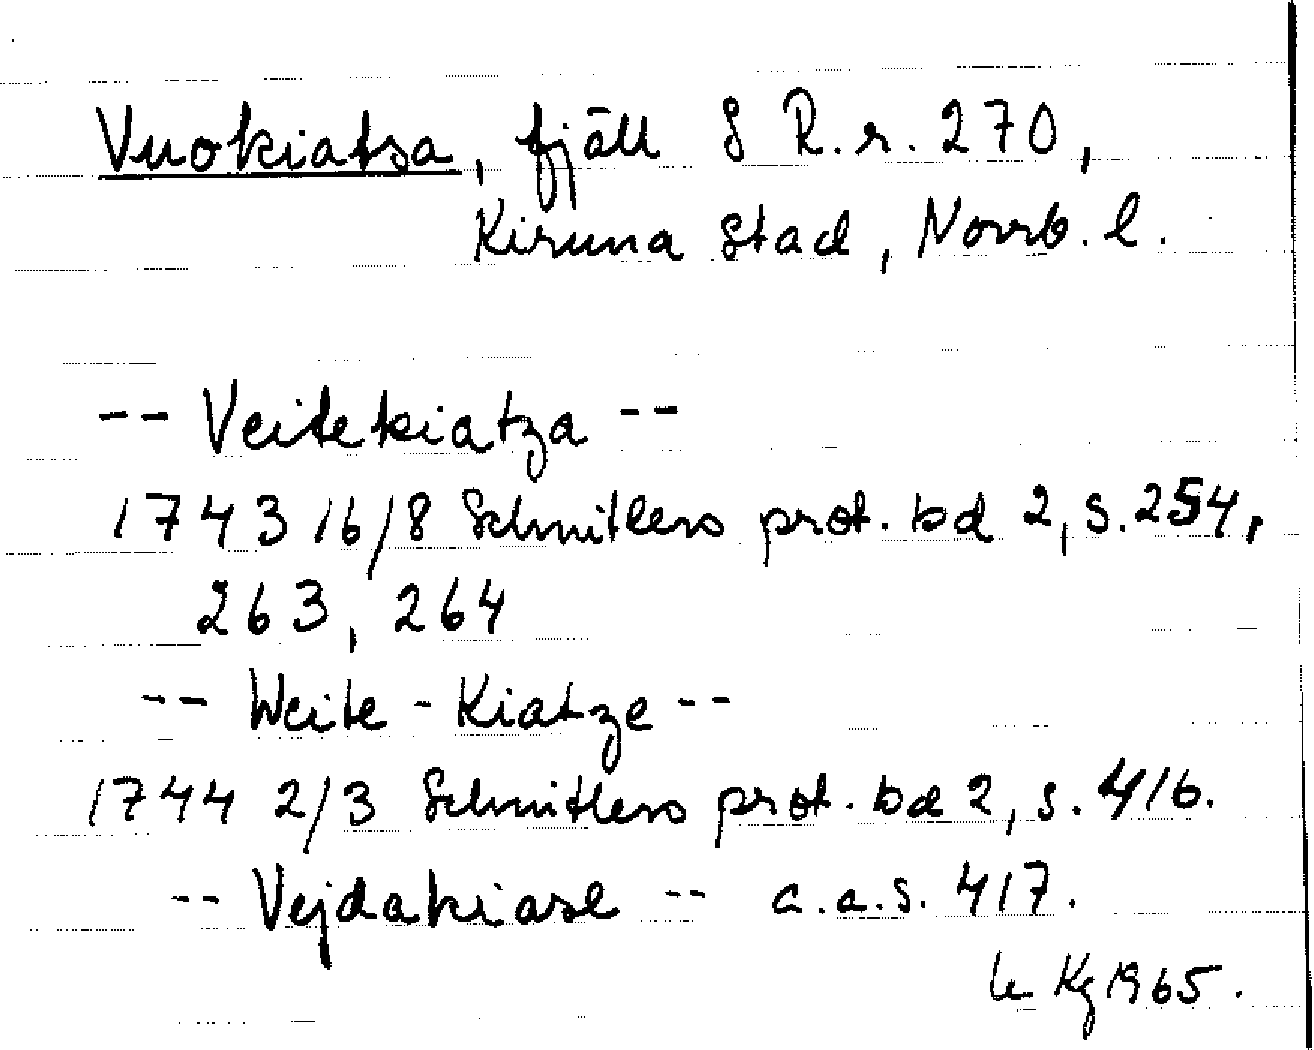 Vuokiatsa, fjäll S R.r. 270,
Kiruna stad, Norrb. l.
-- Veitekiatza --
1743 16/8 Schnitlers prot. bd 2, s. 254,
263, 264
-- Weite - Kiatze --
1744 2/3 Schnitlers prot. bd 2, s. 416.
-- Vejdakiase -- a.a.s. 417.
Kg 1965.